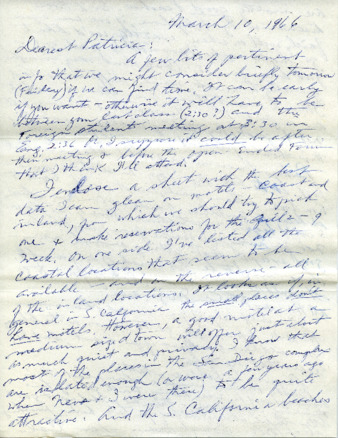 March 10, 1966
Dearest Patricia:
A few bits of pertinent
info that we might consider briefly tomorrow
(Friday) if we can find time. It can be early
if you want – otherwise it will have to be
between your last class (2:30?) and the
foreign students meeting at 3:30 in
Lang. 236 I suppose it could be after
this meeting & before the Open Ended Forum
that I think I'll attend.
I enclose a sheet with the best
data I can glean on motels – coast and
inland, from which we should try to pick
one & make reservations for the
week. On one side I've listed all the
coastal locations that seem to be
available – and on the reverse – all
of the inland locations. It looks as if in
general in S. California the small places don't
have motels. However, a good motel at a
medium sized town will offer just about
as much quiet and privacy. I know that
most of the places in the San Diego complex
are isolated enough (or were a few years ago
when & I were there) to be quite
attractive. And the S. California beaches